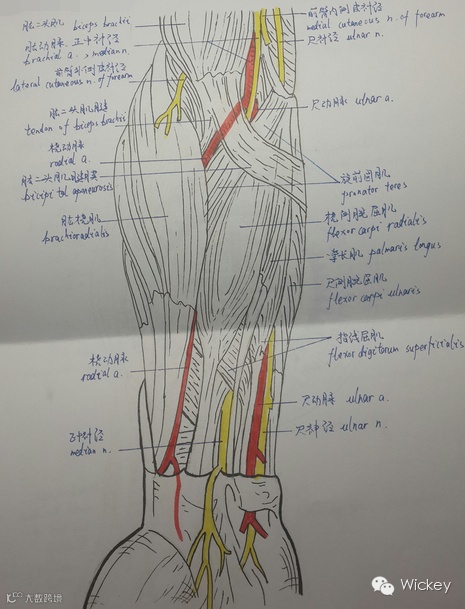 肱二头肌 biceps brachii
肱动脉、正中神经
brachial a. median n.
前臂外侧皮神经
lateral cutaneous n. of forearm
肱二头肌肌腱
tendon of biceps brachii
桡动脉
radial a.
肱二头肌肌腱膜
bicipital aponeurosis
肱桡肌
brachioradialis
桡动脉
radial a.
正中神经
median n.
前臂内侧皮神经
medial cutaneous n. of forearm
尺神经 ulnar n.
尺动脉 ulnar a.
旋前圆肌
pronator teres
桡侧腕屈肌
flexor carpi radialis
掌长肌 palmaris longus
尺侧腕屈肌
flexor carpi ulnaris
指浅屈肌
flexor digitorum superficialis
尺动脉 ulnar a.
尺神经 ulnar n.
Wickey
大数跨境